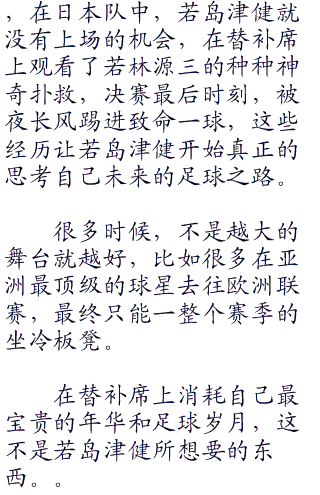 ，在日本队中，若岛津健就
没有上场的机会，在替补席
上观看了若林源三的种种神
奇扑救，决赛最后时刻，被
夜长风踢进致命一球，这些
经历让若岛津健开始真正的
思考自己未来的足球之路。
很多时候，不是越大的
舞台就越好，比如很多在亚
洲最顶级的球星去往欧洲联
赛，最终只能一整个赛季的
坐冷板凳。
在替补席上消耗自己最
宝贵的年华和足球岁月，这
不是若岛津健所想要的东
西。。